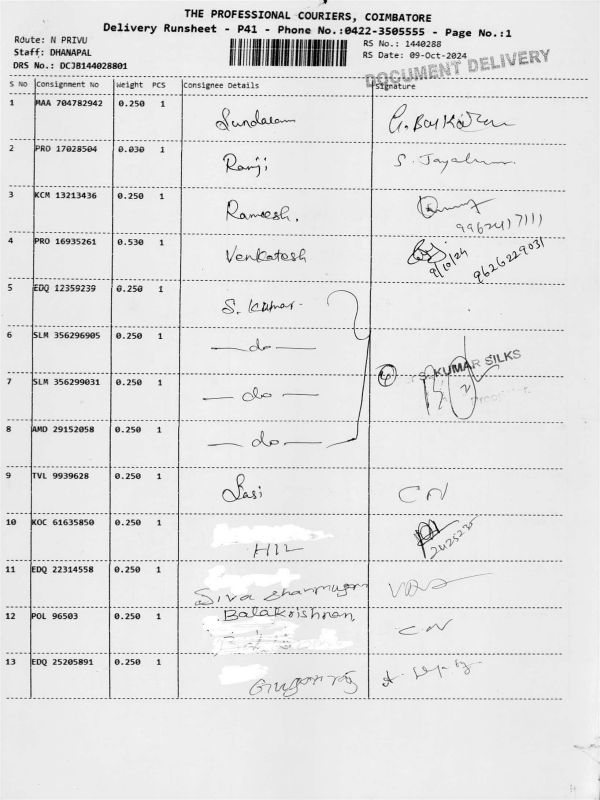 THE PROFESSIONAL COURIERS, COIMBATORE
Delivery Runsheet - P41 - Phone No.:0422-3505555 - Page No.:1
Route: N PRIVU
RS No.: 1440288
Staff: DHANAPAL
RS Date: 09-Oct-2024
DRS No.: DCJB144028801
DOCUMENT DELIVERY
S No Consignment No Weight PCS Consignee Details Signature
1 MAA 704782942 0.250 1 Sundaram
2 PRO 17028504 0.030 1 Ramji
3 KCM 13213436 0.250 1 Ramesh. 9962417111
4 PRO 16935261 0.530 1 Venkatesh 9/10/24 9626229031
5 EDQ 12359239 0.250 1 S. Kumar
6 SLM 356296905 0.250 1 — do — KUMAR SILKS
7 SLM 356299031 0.250 1 — do — 4
8 AMD 29152058 0.250 1 — do —
9 TVL 9939628 0.250 1 Sasi CN
10 KOC 61635850 0.250 1 HIL
11 EDQ 22314558 0.250 1 Siva Shanmugam
12 POL 96503 0.250 1 Balakrishnan CN
13 EDQ 25205891 0.250 1